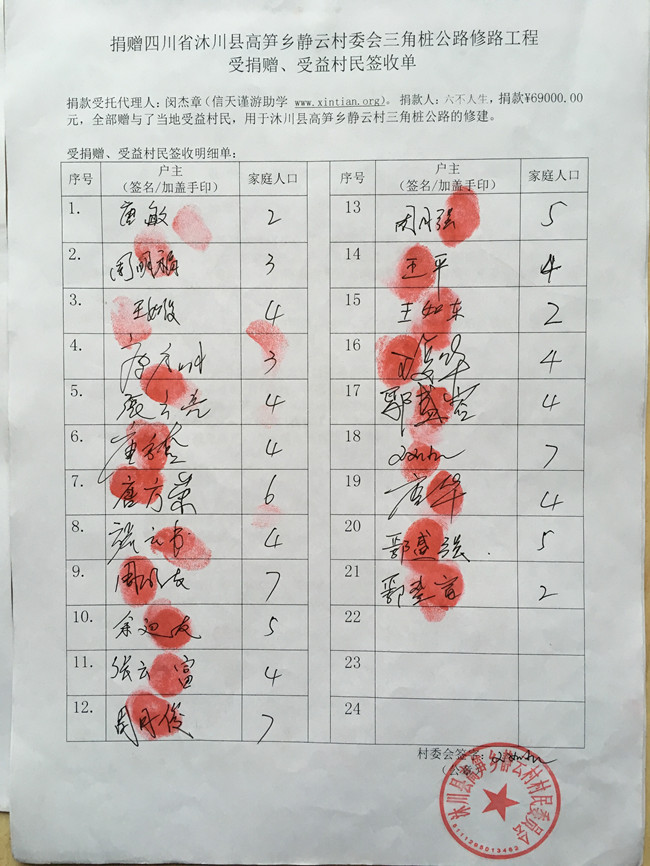 捐赠四川省沐川县高笋乡静云村委会三角桩公路修路工程
受捐赠、受益村民签收单
捐款受托代理人：闵杰章（信天谨游助学 www.xintian.org）。 捐款人：六不人生，捐款¥69000.00
元，全部赠与了当地受益村民，用于沐川县高笋乡静云村三角桩公路的修建。
受捐赠、受益村民签收明细单：
序号 户主（签名/加盖手印） 家庭人口 序号 户主（签名/加盖手印） 家庭人口
1. 唐敏 2
2. 周明福 3
3. 4
4. 3
5. 4
6. 4
7. 唐方荣 6
8. 4
9. 7
10. 5
11. 张云富 4
12. 周月俊 7
13 周月强 5
14 王平 4
15 王如东 2
16 4
17 郭盛 4
18 7
19 唐华 4
20 鄢盛强 5
21 2
22
23
24
村委会签字：
沐川县高笋乡静云村村民委员会